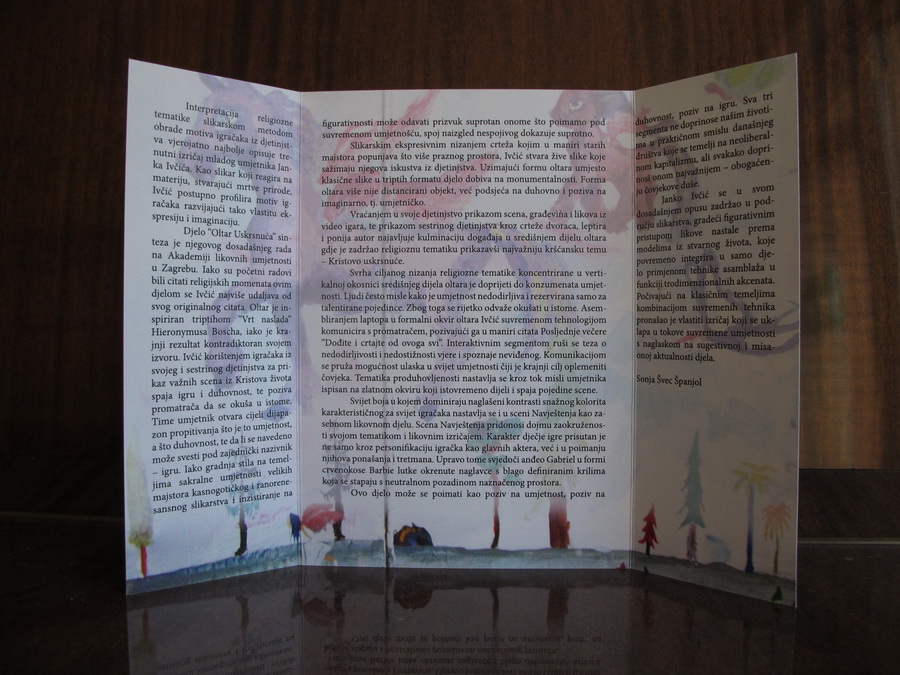 Interpretacija religiozne
tematike slikarskom metodom
obrade motiva igračaka iz djetinjst-
va vjerojatno najbolje opisuje tre-
nutni izričaj mladog umjetnika Jan-
ka Ivčića. Kao slikar koji reagira na
materiju, stvarajući mrtve prirode,
Ivčić postupno profilira motiv ig-
račaka razvijajući tako vlastitu ek-
spresiju i imaginaciju.
Djelo "Oltar Uskrsnuća" sin-
teza je njegovog dosadašnjeg rada
na Akademiji likovnih umjetnosti
u Zagrebu. Iako su početni radovi
bili citati religijskih momenata ovim
djelom se Ivčić najviše udaljava od
svog originalnog citata. Oltar je in-
spiriran triptihom "Vrt naslada"
Hieronymusa Boscha, iako je kra-
jnji rezultat kontradiktoran svojem
izvoru. Ivčić korištenjem igračaka iz
svojeg i sestrinog djetinjstva za pri-
kaz važnih scena iz Kristova života
spaja igru i duhovnost, te poziva
promatrača da se okuša u istome.
Time umjetnik otvara cijeli dijapa-
zon propitivanja što je to umjetnost,
a što duhovnost, te da li se navedeno
može svesti pod zajednički nazivnik
– igru. Iako gradnja stila na temel-
jima sakralne umjetnosti velikih
majstora kasnogotičkog i ranorene-
sansnog slikarstva i inzistiranje na
figurativnosti može odavati prizvuk suprotan onome što poimamo pod
suvremenom umjetnošću, spoj naizgled nespojivog dokazuje suprotno.
Slikarskim ekspresivnim nizanjem crteža kojim u maniri starih
majstora popunjava što više praznog prostora, Ivčić stvara žive slike koje
sažimaju njegova iskustva iz djetinjstva. Uzimajući formu oltara umjesto
klasične slike u triptih formatu djelo dobiva na monumentalnosti. Forma
oltara više nije distancirani objekt, već podsjeća na duhovno i poziva na
imaginarno, tj. umjetničko.
Vraćanjem u svoje djetinjstvo prikazom scena, građevina i likova iz
video igara, te prikazom sestrinog djetinjstva kroz crteže dvoraca, leptira
i ponija autor najavljuje kulminaciju događaja u središnjem dijelu oltara
gdje je zadržao religioznu tematiku prikazavši najvažniju kršćansku temu
– Kristovo uskrsnuće.
Svrha ciljanog nizanja religiozne tematike koncentrirane u verti-
kalnoj okosnici središnjeg dijela oltara je doprijeti do konzumenata umjet-
nosti. Ljudi često misle kako je umjetnost nedodirljiva i rezervirana samo za
talentirane pojedince. Zbog toga se rijetko odvaže okušati u istome. Asem-
bliranjem laptopa u formalni okvir oltara Ivčić suvremenom tehnologijom
komunicira s promatračem, pozivajući ga u maniri citata Posljednje večere
"Dođite i crtajte od ovoga svi". Interaktivnim segmentom ruši se teza o
nedodirljivosti i nedostižnosti vjere i spoznaje neviđenog. Komunikacijom
se pruža mogućnost ulaska u svijet umjetnosti čiji je krajnji cilj oplemeniti
čovjeka. Tematika produhovljenosti nastavlja se kroz tok misli umjetnika
ispisan na zlatnom okviru koji istovremeno dijeli i spaja pojedine scene.
Svijet boja u kojem dominiraju naglašeni kontrasti snažnog kolorita
karakterističnog za svijet igračaka nastavlja se i u sceni Navještenja kao za-
sebnom likovnom djelu. Scena Navještenja pridonosi dojmu zaokruženos-
ti svojom tematikom i likovnim izričajem. Karakter dječje igre prisutan je
ne samo kroz personifikaciju igračka kao glavnih aktera, već i u poimanju
njihova ponašanja i tretmana. Upravo tome svjedoči anđeo Gabriel u formi
crvenokose Barbie lutke okrenute naglavce s blago definiranim krilima
koja se stapaju s neutralnom pozadinom naznačenog prostora.
Ovo djelo može se poimati kao poziv na umjetnost, poziv na
duhovnost, poziv na igru. Sva tri
segmenta ne doprinose našim životi-
ma u praktičnom smislu današnjeg
društva koje se temelji na neoliberal-
nom kapitalizmu, ali svakako dopri-
nosi onom najvažnijem – obogaćen-
ju čovjekove duše.
Janko Ivčić se u svom
dosadašnjem opusu zadržao u pod-
ručju slikarstva, gradeći figurativnim
pristupom likove nastale prema
modelima iz stvarnog života, koje
povremeno integrira u samo dje-
lo primjenom tehnike asamblaža u
funkciji trodimenzionalnih akcenata.
Počivajući na klasičnim temeljima
kombinacijom suvremenih tehnika
pronašao je vlastiti izričaj koji se uk-
lapa u tokove suvremene umjetnosti
s naglaskom na sugestivnoj i misa-
onoj aktualnosti djela.
Sonja Švec Španjol